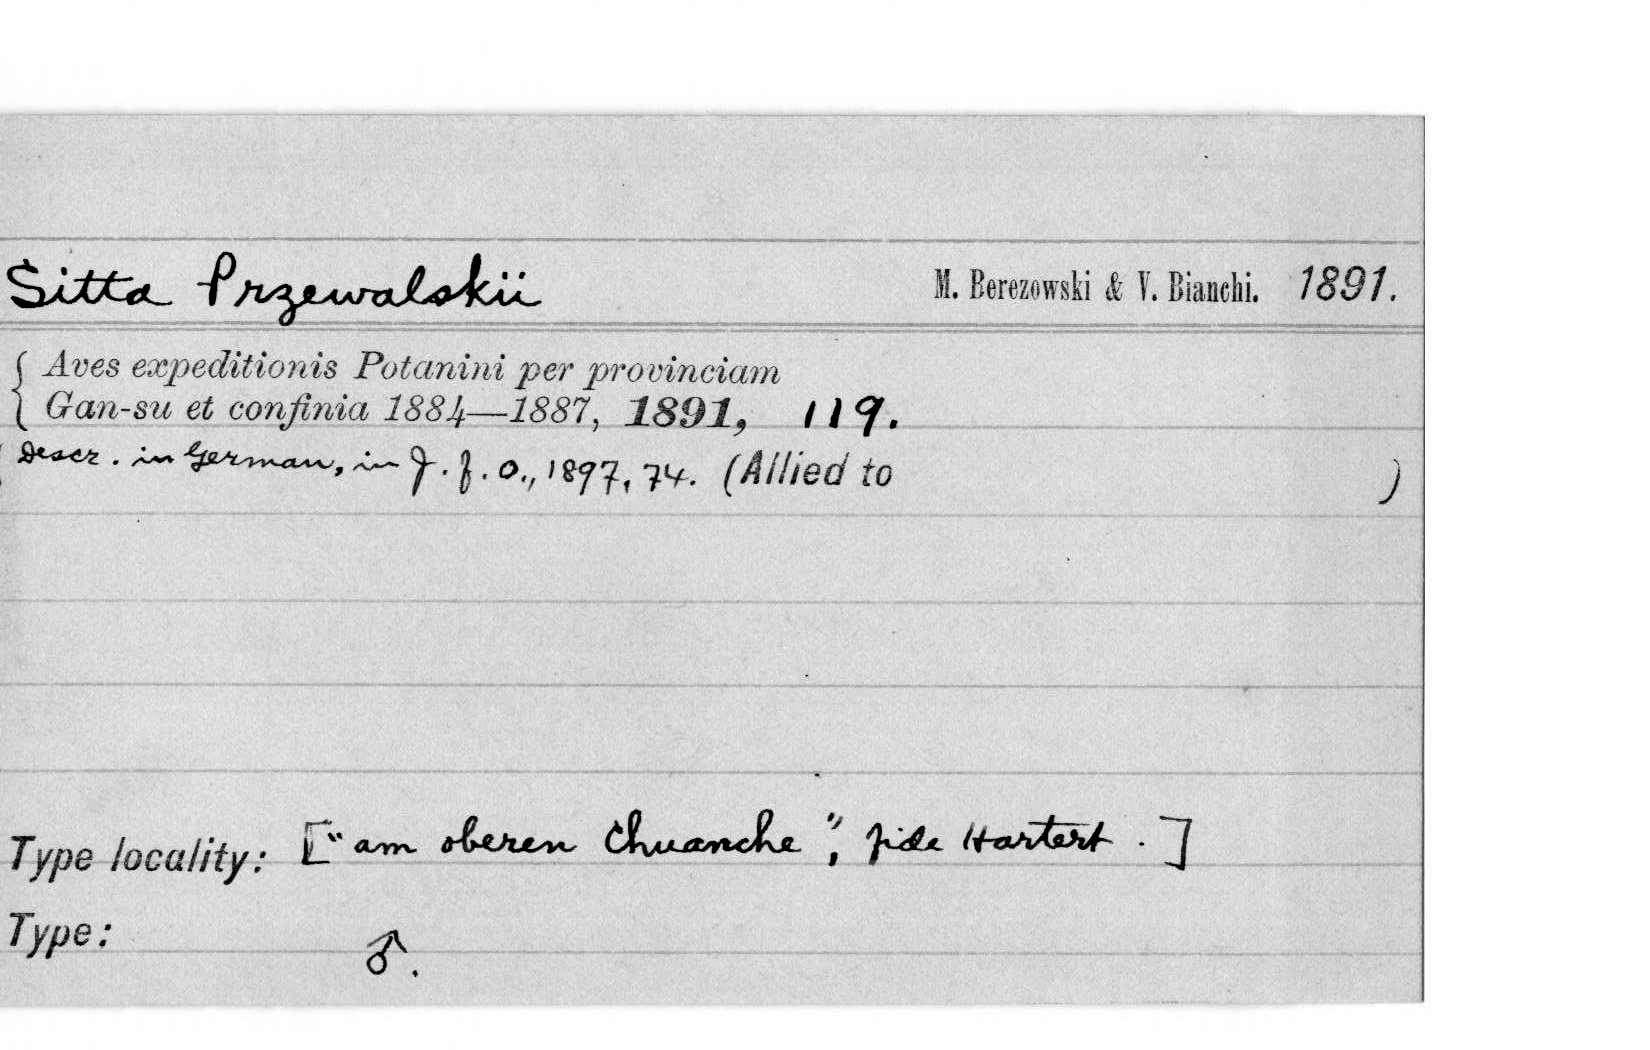 Sitta Przewalskii M. Berezowski & V. Bianchi. 1891.
{ Aves expeditionis Potanini per provinciam
Gan-su et confinia 1884—1887, 1891, 119.
Descr. in German, in J. f. O., 1897, 74. (Allied to )
Type locality: ["am oberen Chuanche", fide Hartert.]
Type: ♂.